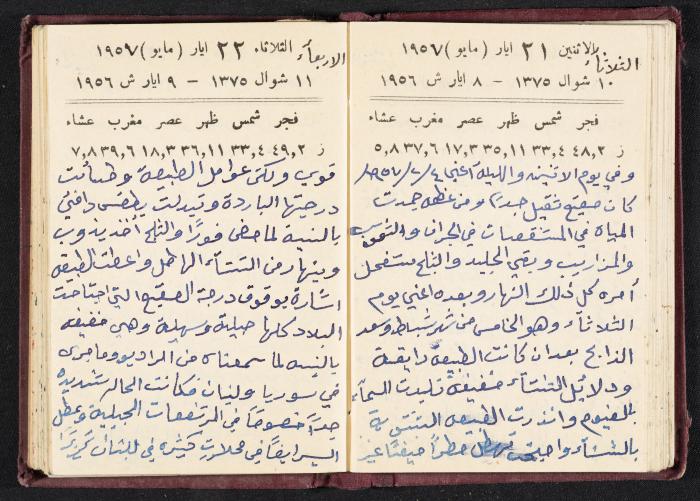 الثلاثاء
بالاثنين ٢١ ايار ( مايو ) ١٩٥٧
١٠ شوال ١٣٧٥ – ٨ ايار ش ١٩٥٦
فجر شمس ظهر عصر مغرب عشاء
ز ٤٨,٢ ٣٣,٤ ٣٥,١١ ١٧,٣ ٣٧,٦ ٥,٨
وفي يوم الاثنين والليلة اعني ٤/٢/
كان صقيع ثقيل جداً ومن عظمه جمدت
المياه في المستنقعات في الجران و
والمزاريب وبقي الجليد والثلج مستفحل
أمره كل ذلك النهار وبعده اعني يوم
الثلاثاء وهو الخامس من شهر شباط وسعد
الذابح بعد ان كانت الطبيعة رايقة
ودلائل الشتاء خفيفة تلبدت السماء
بالغيوم وانذرت الطبيعة
بالشتاء مطراً خفيفاً غير
الاربعاء
الثلاثاء ٢٢ ايار ( مايو ) ١٩٥٧
١١ شوال ١٣٧٥ – ٩ ايار ش ١٩٥٦
فجر شمس ظهر عصر مغرب عشاء
ز ٤٩,٢ ٣٣,٤ ٣٦,١١ ١٨,٣ ٣٩,٦ ٧,٨
قوي ولكن عوامل الطبيعة
درجتها الباردة وتبدلت بطقس دافئ
بالنسبة لما مضى فوراً والثلج أخذ يذوب
وينهار من الشتاء الهاطل واعطت الطبيعة
اشارة بوقوف درجة الصقيع التي اجتاحت
البلاد كلها جبلية وسهلية وهي خفيفة
بالنسبة لما سمعناه من الراديو وما جرى
في سوريا ولبنان فكانت الحالة شديدة
جداً خصوصاً في المرتفعات الجبلية وعطل
السير ايضاً في محلات كثيرة في لبنان